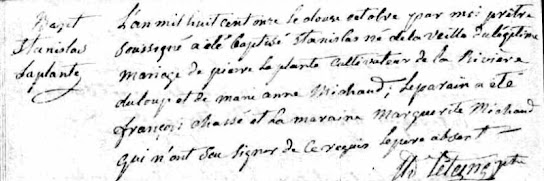 Bapt
Stanislas
Laplante
L'an mil huit cent onze le douse octobre par moi prêtre
soussigné a été baptisé Stanislas né de la veille du légitime
mariage de pierre la plante cultivateur de la Riviere
du loup et de marie anne Michaud; le parain a été
françois chassé et la maraine marguerite Michaud
qui n'ont seu signer de ce requis le pere absent